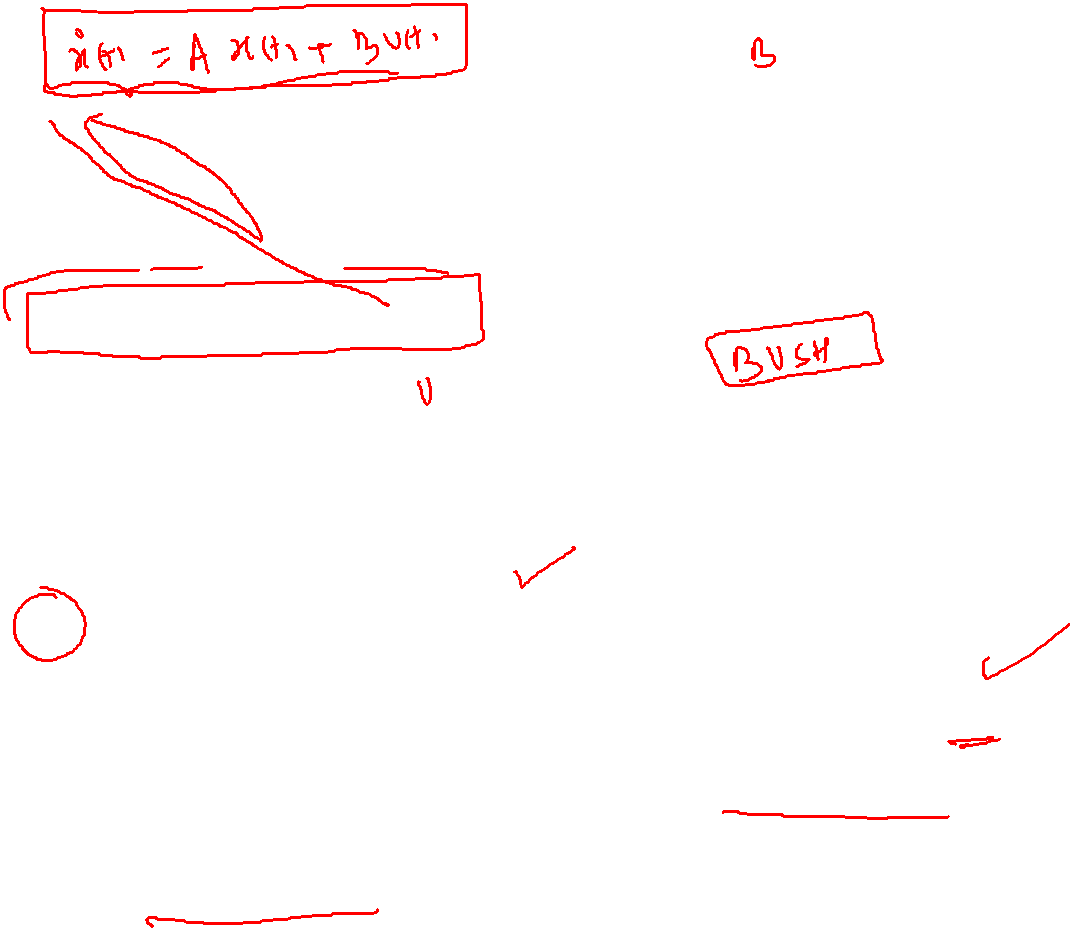 ẋ(t) = A x(t) + B U(t)
B
BUSH
U